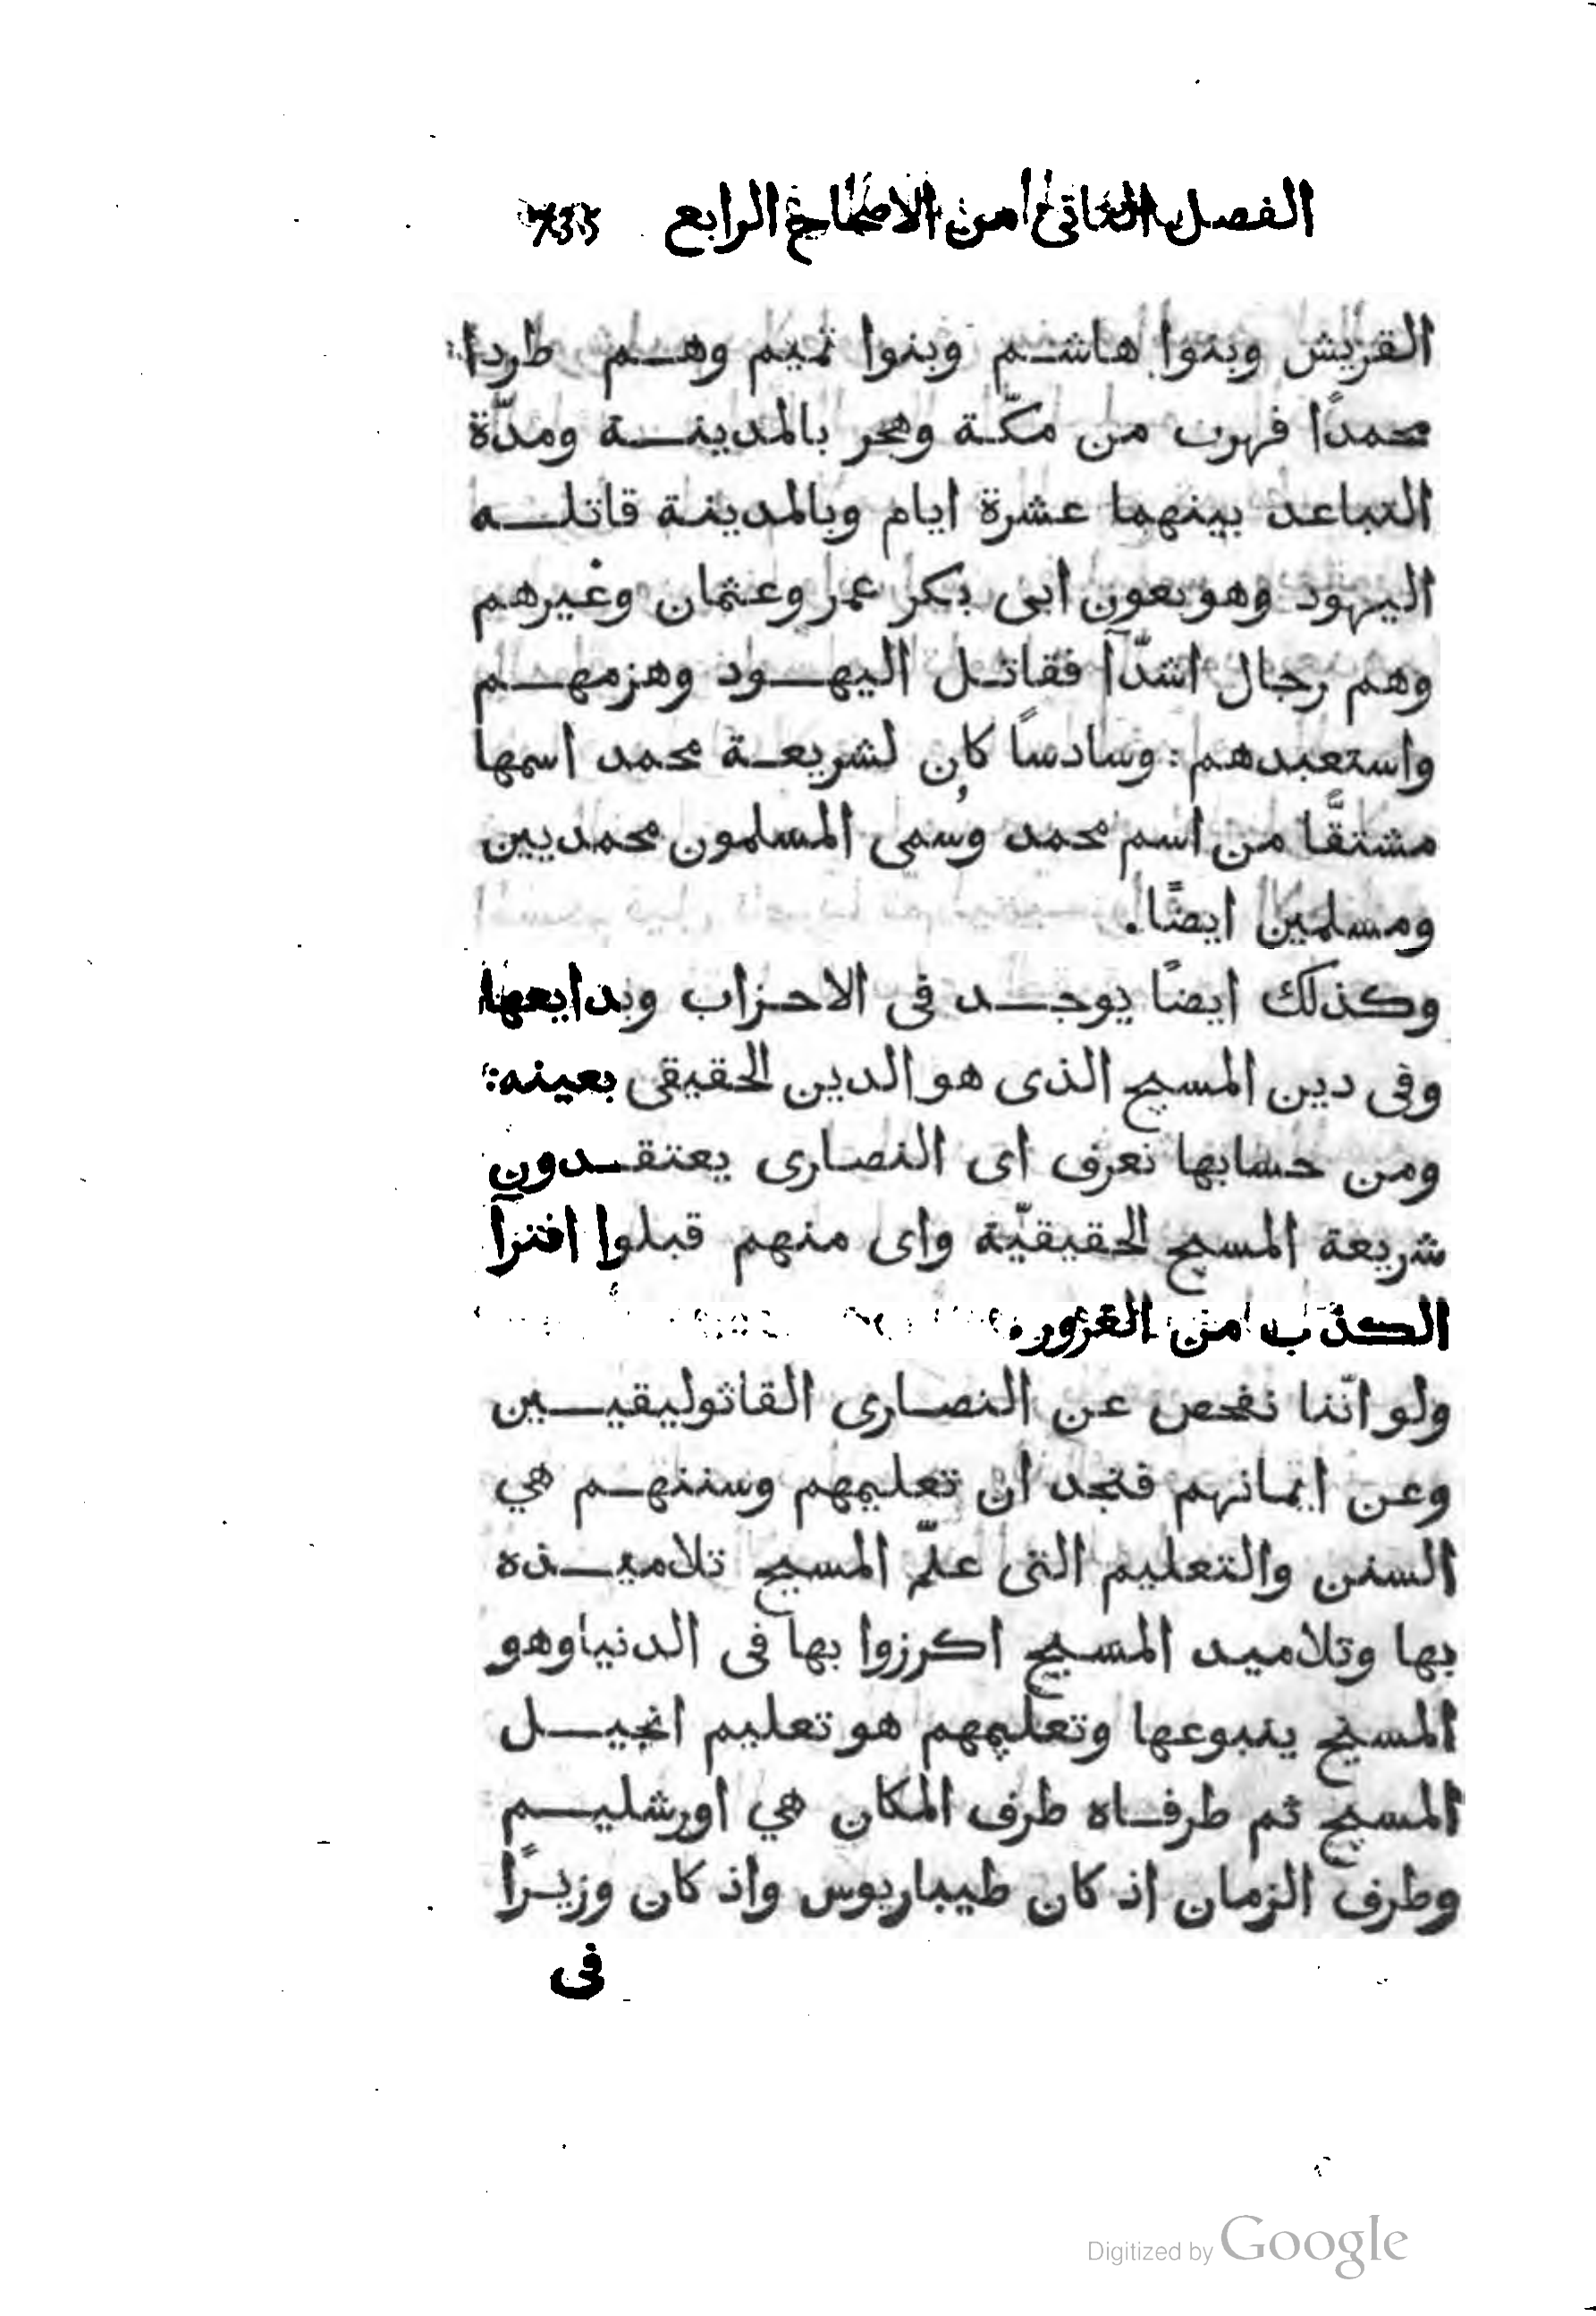 الفصل الثاني من الاصحاح الرابع
القريش وبنوا هاشم وبنوا تميم وهم طردا
محمدًا فهرب من مكّة وهجر بالمدينة ومدّة
التباعد بينهما عشرة ايام وبالمدينة قاتله
اليهود وهو بعون ابى بكر عمر وعثمان وغيرهم
وهم رجال اشدّآ فقاتل اليهود وهزمهم
واستعبدهم : وسادسًا كان لشريعة محمد اسمها
مشتقًّا من اسم محمد وسُمى المسلمون محمديين
ومسلمين ايضًا.
وكذلك ايضًا يوجد فى الاحزاب وبدايعها
وفى دين المسيح الذى هو الدين الحقيقى بعينه :
ومن حسابها نعرف اى النصارى يعتقدون
شريعة المسيح الحقيقيّة واى منهم قبلوا افترآ
الكذب من الغرور.
ولو انّنا نفحص عن النصارى القاثوليقيين
وعن ايمانهم فنجد ان تعليمهم وسننهم هي
السنن والتعليم التى علّم المسيح تلاميذه
بها وتلاميد المسيح اكرزوا بها فى الدنيا وهو
المسيح ينبوعها وتعليمهم هو تعليم انجيل
المسيح ثم طرفاه طرف المكان هي اورشليم
وطرف الزمان اذ كان طيباريوس واذ كان وزيرًا
فى
Digitized by Google